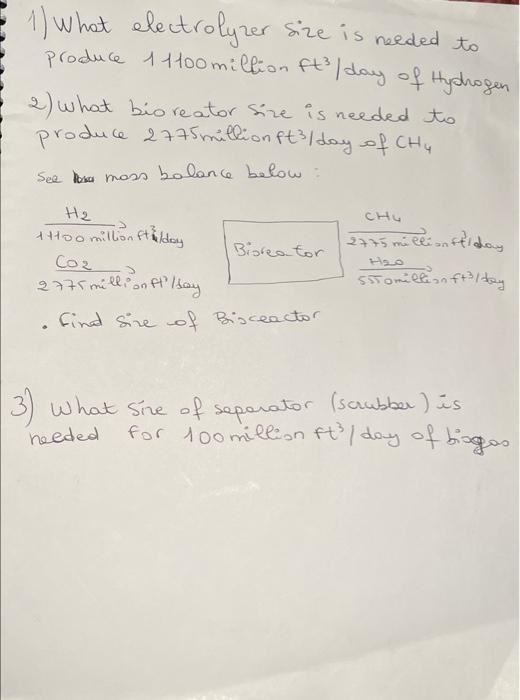 1) What electrolyzer size is needed to
produce 11100 million ft³/day of Hydrogen
2) What bioreator size is needed to
produce 2775 million ft³/day of CH4
see mass balance below :
H2
11100 million ft³/day
CO2
2775 million ft³/day
Bioreator
CH4
2775 million ft³/day
H2O
5550 million ft³/day
. find size of Bioreactor
3) What size of separator (scrubber) is
needed for 100 million ft³/day of biogas